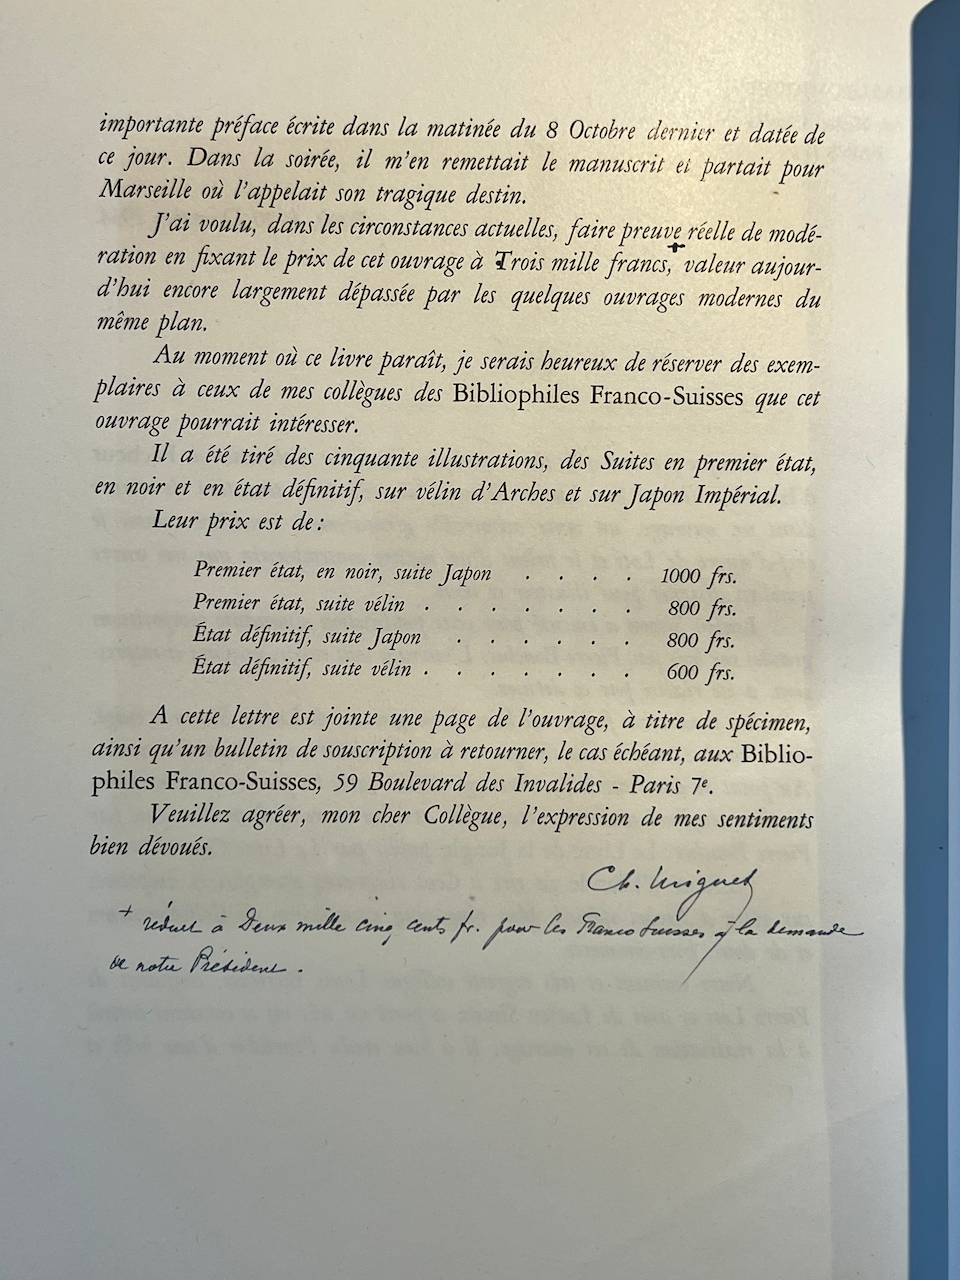 importante préface écrite dans la matinée du 8 Octobre dernier et datée de
ce jour. Dans la soirée, il m'en remettait le manuscrit et partait pour
Marseille où l'appelait son tragique destin.
J'ai voulu, dans les circonstances actuelles, faire preuve réelle de modé-
ration en fixant le prix de cet ouvrage à Trois mille francs,+ valeur aujour-
d'hui encore largement dépassée par les quelques ouvrages modernes du
même plan.
Au moment où ce livre paraît, je serais heureux de réserver des exem-
plaires à ceux de mes collègues des Bibliophiles Franco-Suisses que cet
ouvrage pourrait intéresser.
Il a été tiré des cinquante illustrations, des Suites en premier état,
en noir et en état définitif, sur vélin d'Arches et sur Japon Impérial.
Leur prix est de :
Premier état, en noir, suite Japon . . . . 1000 frs.
Premier état, suite vélin . . . . . . . 800 frs.
État définitif, suite Japon . . . . . . 800 frs.
État définitif, suite vélin . . . . . . . 600 frs.
A cette lettre est jointe une page de l'ouvrage, à titre de spécimen,
ainsi qu'un bulletin de souscription à retourner, le cas échéant, aux Biblio-
philes Franco-Suisses, 59 Boulevard des Invalides - Paris 7e.
Veuillez agréer, mon cher Collègue, l'expression de mes sentiments
bien dévoués.
Ch. Miguet
+ réduit à Deux mille cinq cents fr. pour les Franco Suisses à la demande
de notre Président.